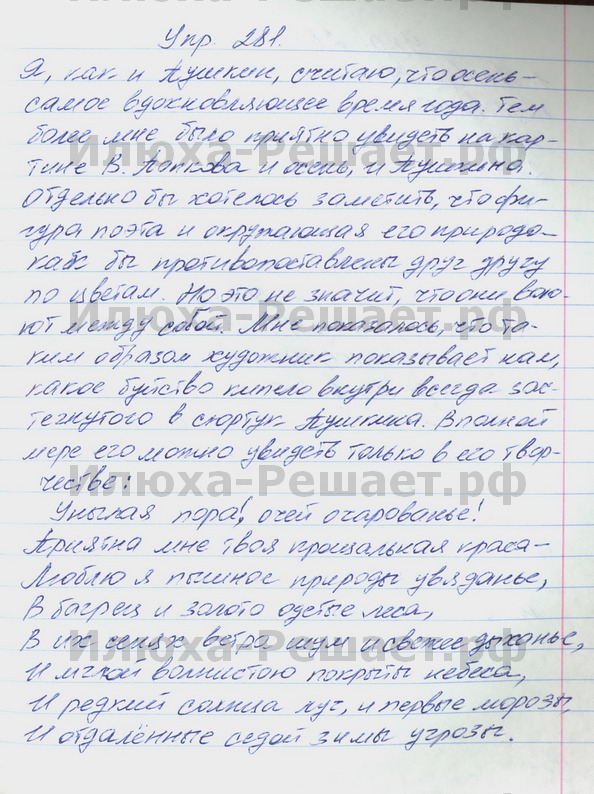 Упр. 281.
Я, как и Пушкин, считаю, что осень –
самое вдохновляющее время года. Тем
более мне было приятно увидеть на кар-
тине В. Попкова и осень, и Пушкина.
Отдельно бы хотелось заметить, что фи-
гура поэта и окружающая его природа –
как бы противопоставлены друг другу
по цветам. Но это не значит, что они вою-
ют между собой. Мне показалось, что та-
ким образом художник показывает нам,
какое буйство кипело внутри всегда зас-
тегнутого в сюртук Пушкина. В полной
мере его можно увидеть только в его твор-
честве:
Унылая пора!, очей очарованье!
Приятна мне твоя прощальная краса –
Люблю я пышное природы увяданье,
В багрец и золото одетые леса,
В их сенях ветра шум и свежее дыханье,
И мглой волнистою покрыты небеса,
И редкий солнца луч, и первые морозы,
И отдалённые седой зимы угрозы.
Илюха-Решает.рф
Илюха-Решает.рф
Илюха-Решает.рф
Илюха-Решает.рф
Илюха-Решает.рф